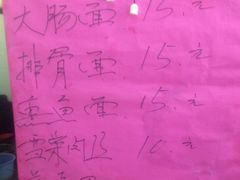 大肠面 15.元
排骨面 15.元
鱼面 15.元
雪菜肉 10.元